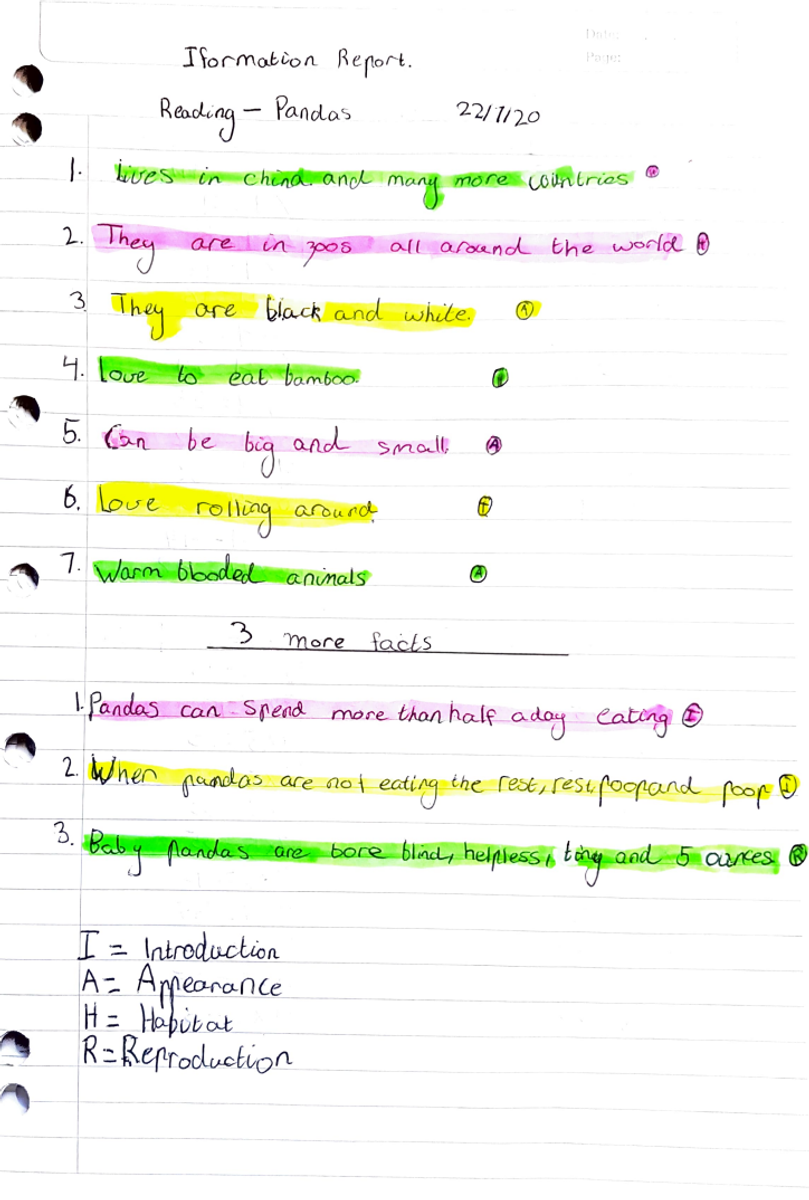 Date:
Page:
Iformation Report.
Reading – Pandas 22/7/20
1. Lives in china and many more countries
2. They are in zoos all around the world H
3. They are black and white. A
4. Love to eat bamboo.
5. Can be big and small. A
6. Love rolling around.
7. Warm blooded animals A
3 more facts
1. Pandas can spend more than half a day eating I
2. When pandas are not eating the rest, rest, poop and poop I
3. Baby pandas are bore blind, helpless, tiny and 5 ounces R
I = Introduction
A = Appearance
H = Habitat
R = Reproduction